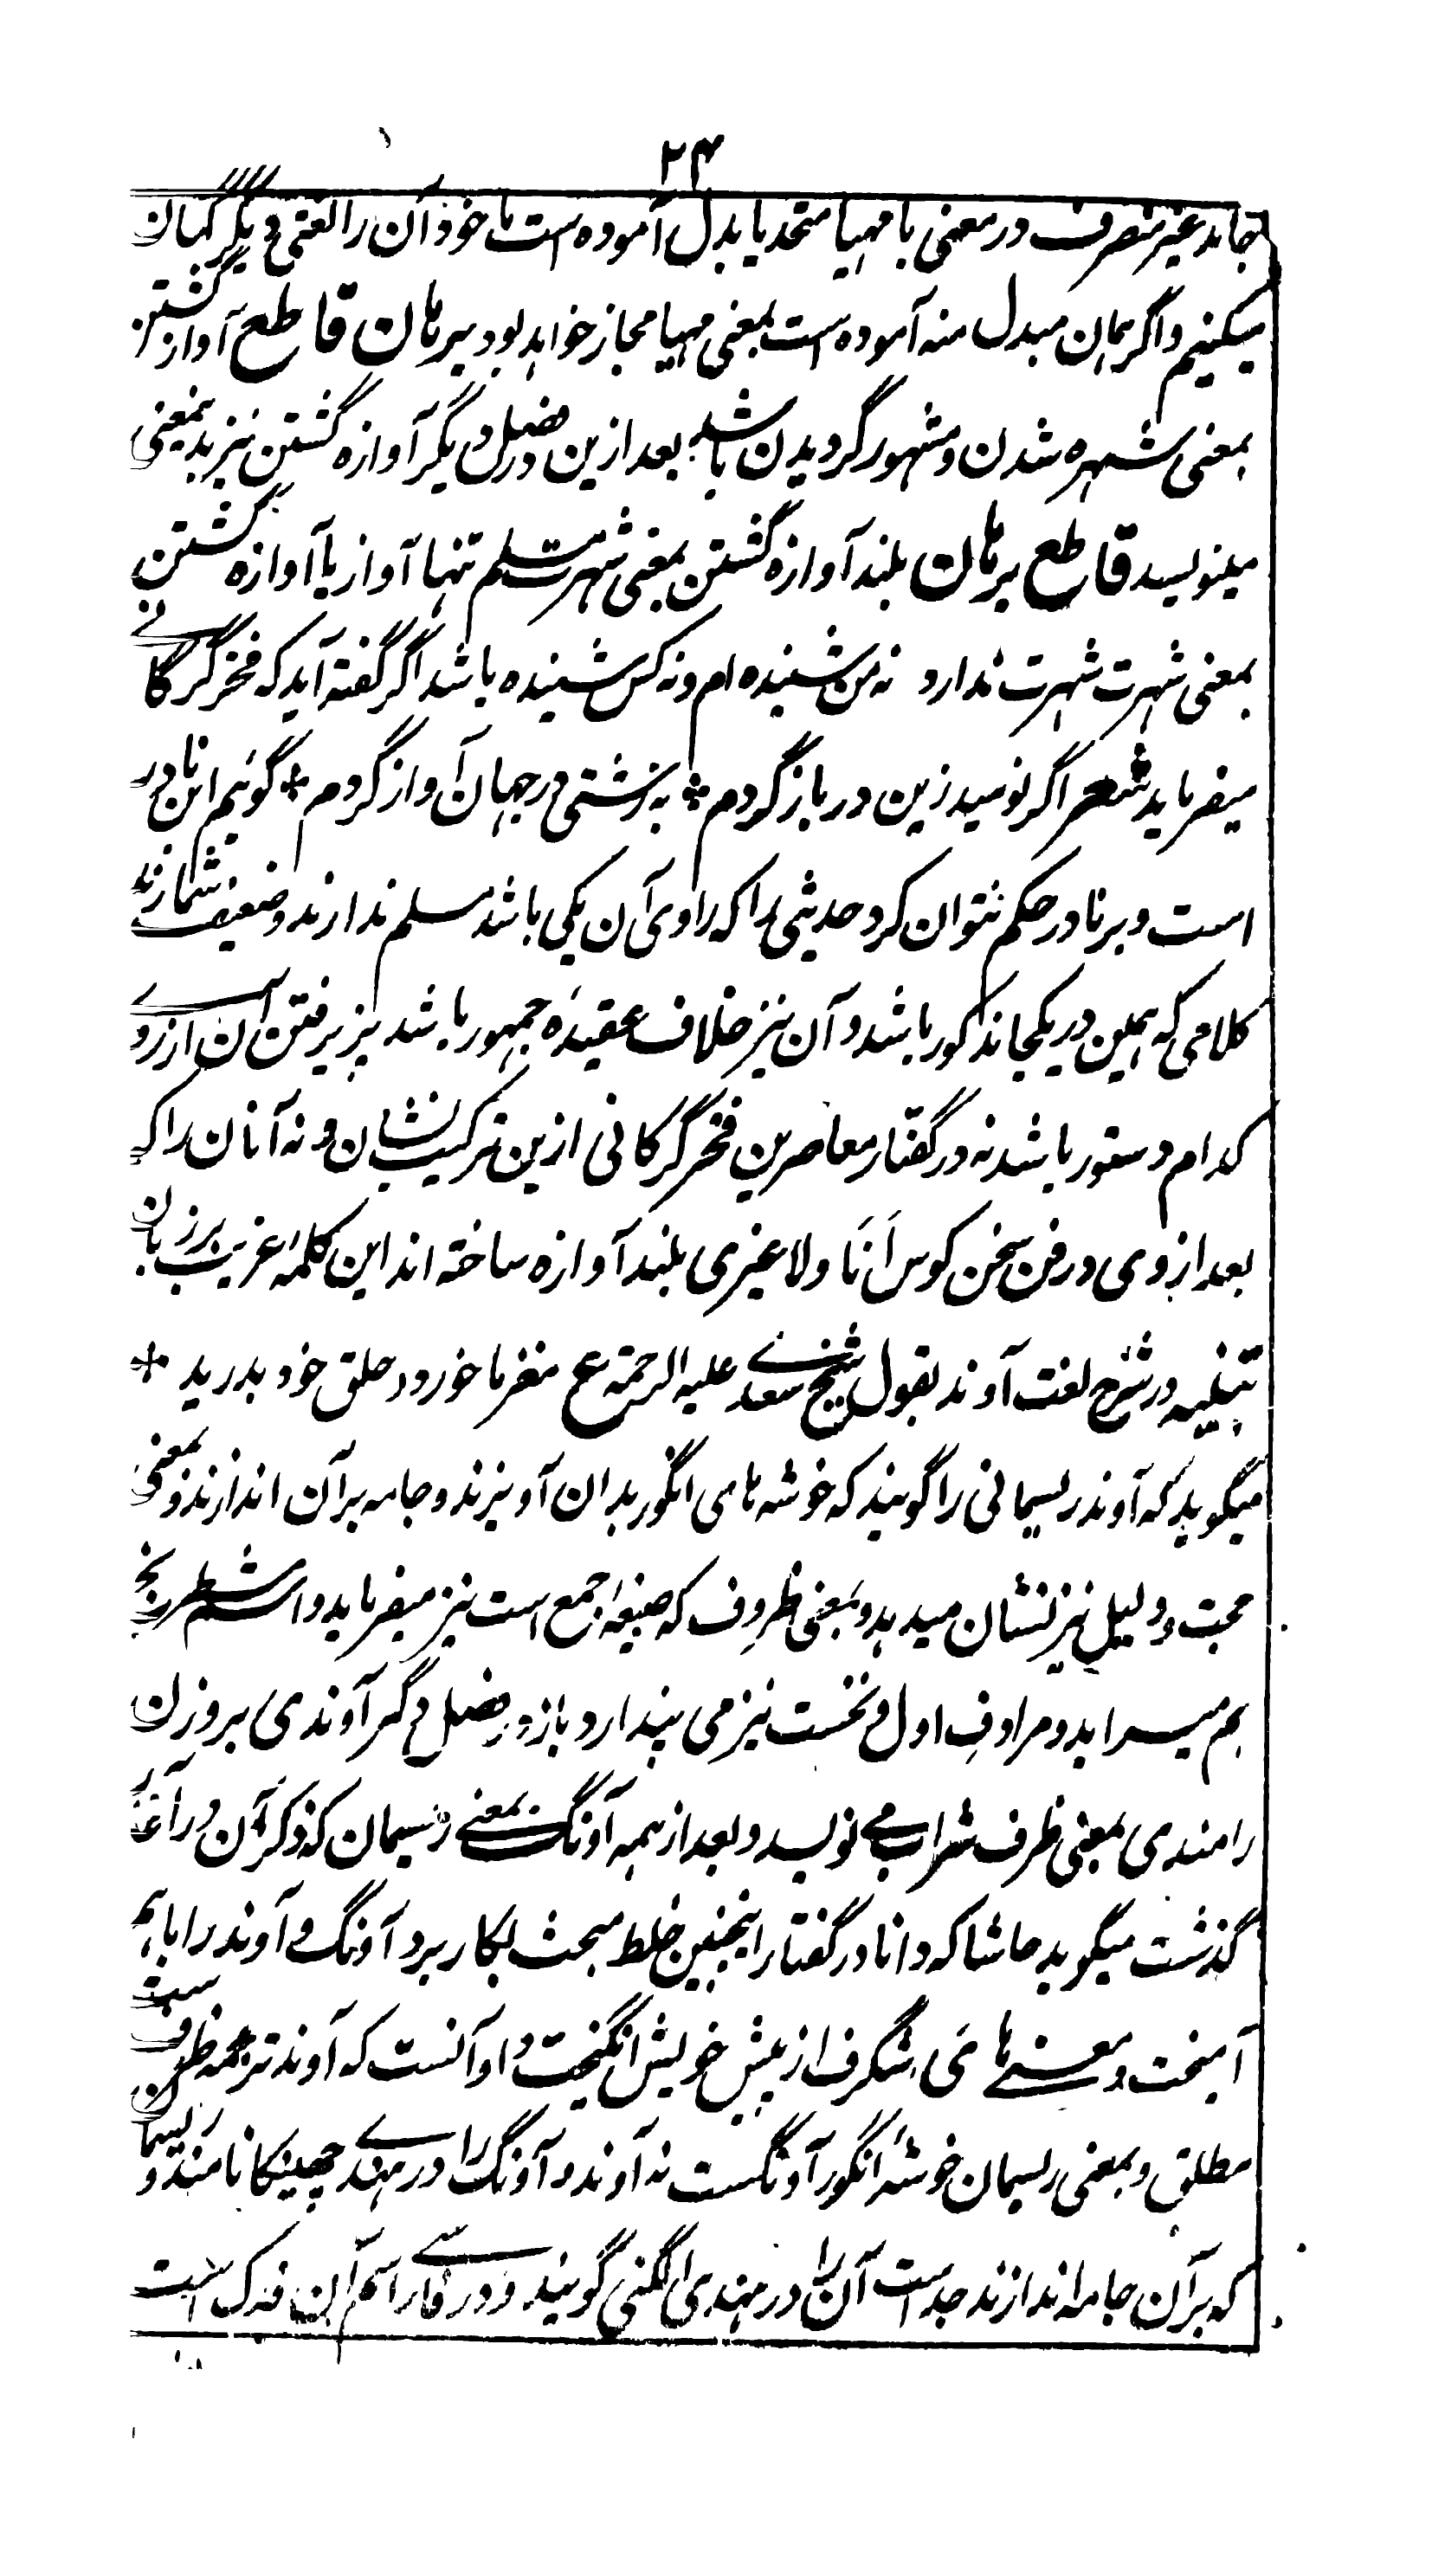 ۲۴
جامد غیر متصرف در معنی با مهیا متحد یا بدل آموده است ما خود آن را لغتی دیگر گمان
میکنیم و اگر همان مبدل منه آموده است بمعنی مهیا مجاز خواهد بود برهان قاطع آواز گشتن
بمعنی شهره شدن و مشهور گردیدن باشد بعد ازین در فصل دیگر آوازه گشتن نیز بدینمعنی
مینویسد قاطع برهان بلند آوازه گشتن بمعنی شهرت مسلم تنها آواز یا آوازه گشتن
بمعنی شهرت شهرت ندارد نه من شنیده ام و نه کس شنیده باشد اگر گفته آید که فخر گرگانی
میفرماید شعر اگر نومید زین در باز گردم * به زشتی در جهان آواز گردم * گوئیم این نادر
است و بر نادر حکم نتوان کرد حدیثی را که راوی آن یکی باشد مسلم ندارند و ضعیف شمارند
کلامی که همین در یکجا مذکور باشد و آن نیز خلاف عقیدهٔ جمهور باشد پزیرفتن آن از روے
کدام دستور باشد نه در گفتار معاصرین فخر گرگانی ازین ترکیب نشان و نه آنان را که
بعد از وی در فن سخن کوس اَنَا و لا غیری بلند آوازه ساخته اند این کلمهٔ غریب بر زبان
تنبیه در شرح لغت آوند بقول شیخ سعدے علیه الرحمة ع مغز ما خورد و حلق خود بدرید *
میگوید که آوند ریسمانی را گویند که خوشه های انگور بدان آویزند و جامه بر آن اندازند و بمعنی
حجت و دلیل نیز نشان میدهد و بمعنی ظروف که صیغهٔ جمع است نیز میفرماید و اسم شطرنج
هم میسراید و مرادفِ اول و نخست نیز می پندارد باز در فصل دگر آوندی بر وزن
رامندی بمعنی ظرف شراب مے نویسد و بعد از همه آونگ بمعنے ریسمان که ذکر آن در آغاز
گذشت میگوید حاشا که دانا در گفتار اینچنین خلط مبحث بکار برد آونگ و آوند را باهم
آمیخت و معنے های شگرف از پیش خویش انگیخت و او آنست که آوند ترجمهٔ ظرف ست
مطلق و بمعنی ریسمان خوشهٔ انگور آونگست نه آوند و آونگ را در هندے چھینکا نامند و ریسمان
که بر آن جامه اندازند جداست آن را در هندی الگنی گویند و در فارسے اسم آن فدک است